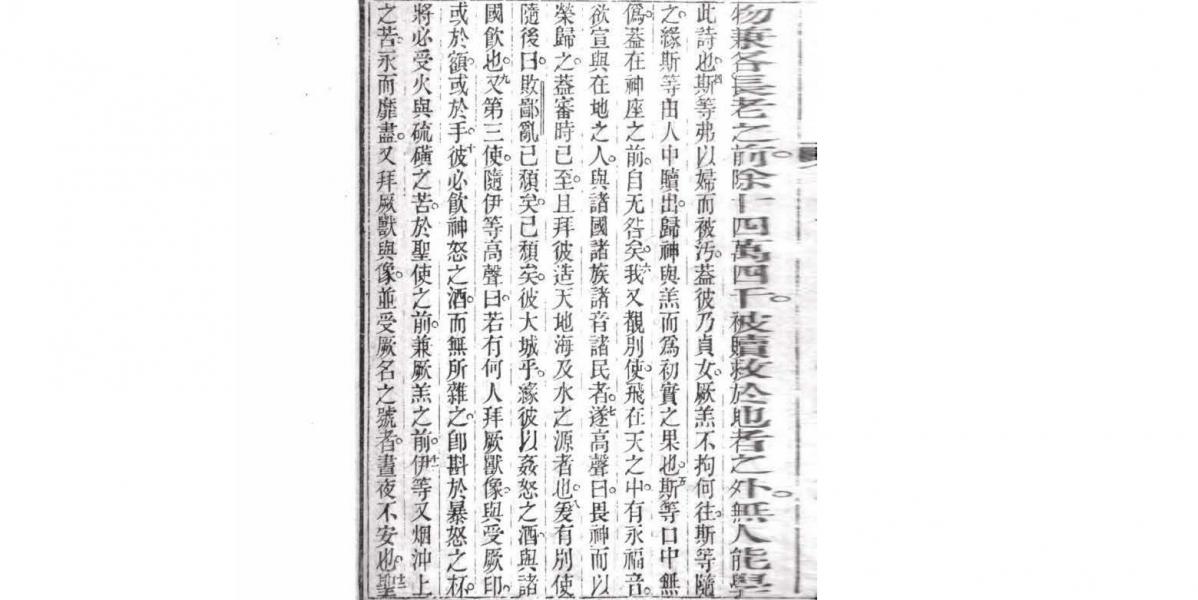 物兼各長老之前。除十四萬四千。被贖救於地者之外。無人能學
此詩也。四斯等弗以婦而被汚。葢彼乃貞女。厥羔不拘何往。斯等隨
之。緣斯等由人中贖出。歸神與羔而爲初實之果也。五斯等口中無
僞。葢在神座之前。自无咎矣。六我又觀別使。飛在天之中。有永福音。
欲宣與在地之人。與諸國諸族諸音諸民者。七遂高聲曰。畏神而以
榮歸之。葢審時已至。且拜彼造天地海及水之源者也。八爰有別使
隨後曰。敗鄙亂已頹矣。已頹矣。彼大城乎。緣彼以姦怒之酒。與諸
國飲也。九又第三使。隨伊等高聲曰。若有何人拜厥獸像。與受厥印。
或於額。或於手。十彼必飲神怒之酒。而無所雜之。卽斟於暴怒之杯。
將必受火與硫磺之苦。於聖使之前。兼厥羔之前。十一伊等又烟沖上
之苦。永而靡盡。又拜厥獸與像。並受厥名之號者。晝夜不安也。十二聖